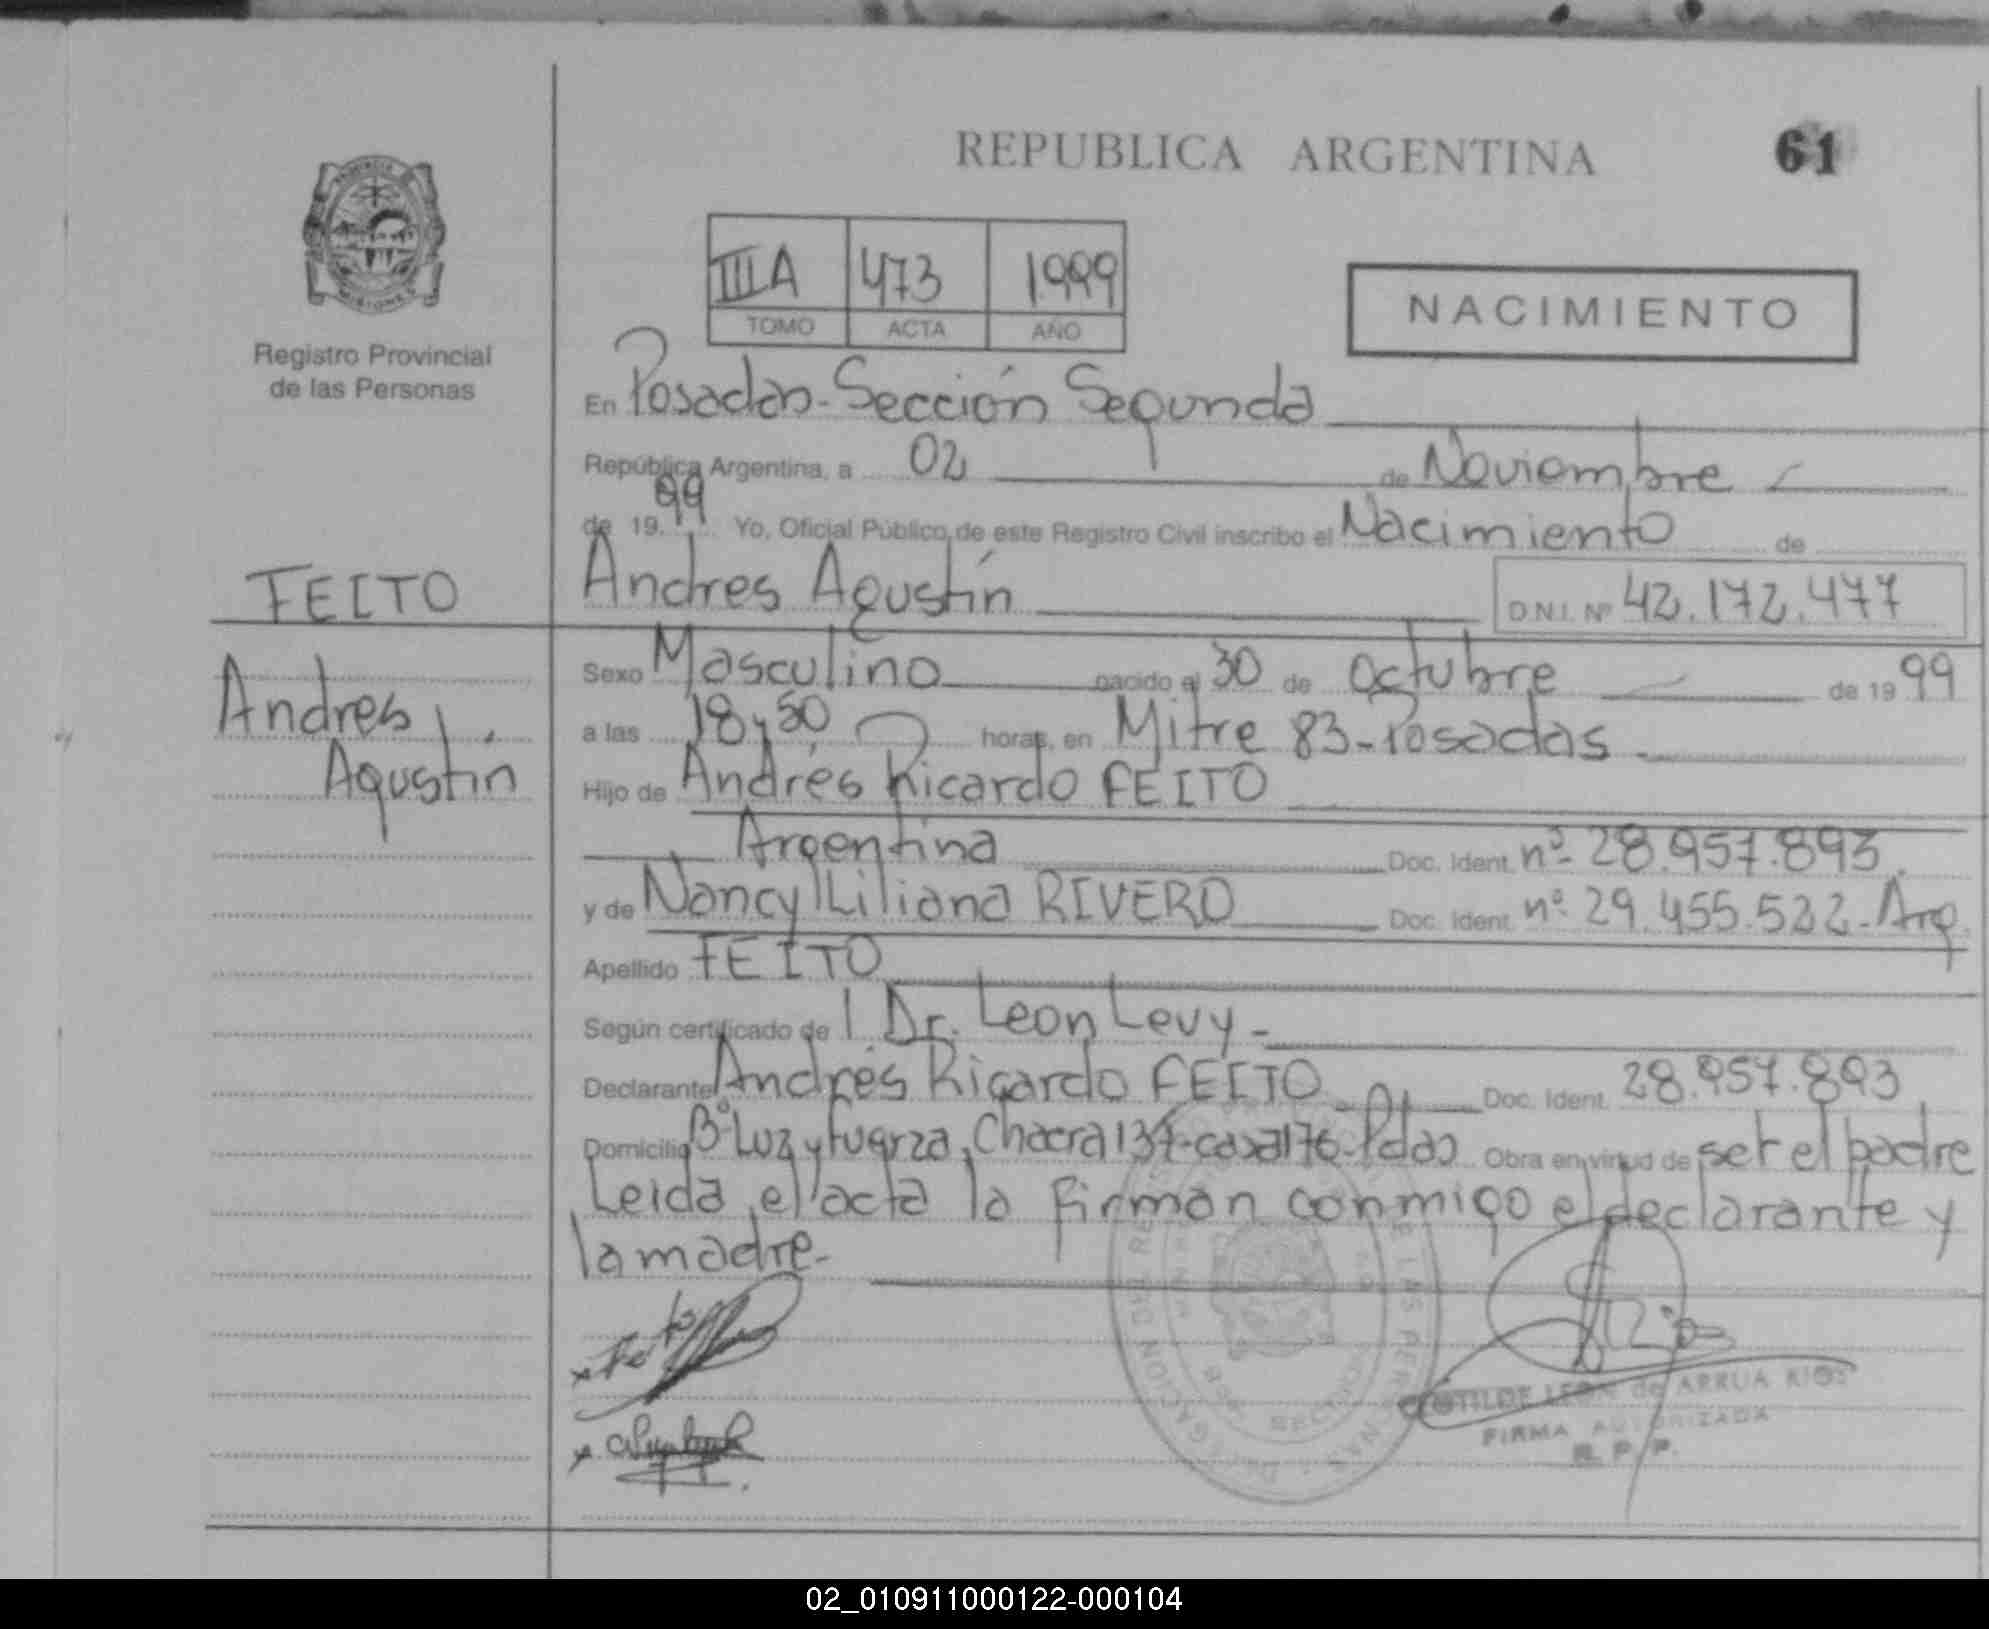 REPUBLICA ARGENTINA 61
Registro Provincial
de las Personas
IIIA 473 1999
TOMO ACTA AÑO
NACIMIENTO
En Posadas-Sección Segunda
República Argentina, a 02 de Noviembre
de 1999 Yo, Oficial Público de este Registro Civil inscribo el Nacimiento de
FEITO
Andres Agustín D.N.I. Nº 42.172.477
Andres
Agustín
Sexo Masculino nacido el 30 de Octubre de 1999
a las 18 y 50 horas, en Mitre 83-Posadas
Hijo de Andrés Ricardo FEITO
Argentina Doc. Ident. nº 28.957.893
y de Nancy Liliana RIVERO Doc. Ident. nº 29.455.522-Arg.
Apellido FEITO
Según certificado de Dr. Leon Levy-
Declarante Andrés Ricardo FEITO Doc. Ident. 28.957.893
Domicilio Bº Luz y Fuerza, Chacra 137-casa 176-Pdas Obra en virtud de ser el padre
Leida el acta la firman conmigo el declarante y
la madre-
CLOTILDE LEON de ARRUA RIOS
FIRMA AUTORIZADA
R. P. P.
02_010911000122-000104